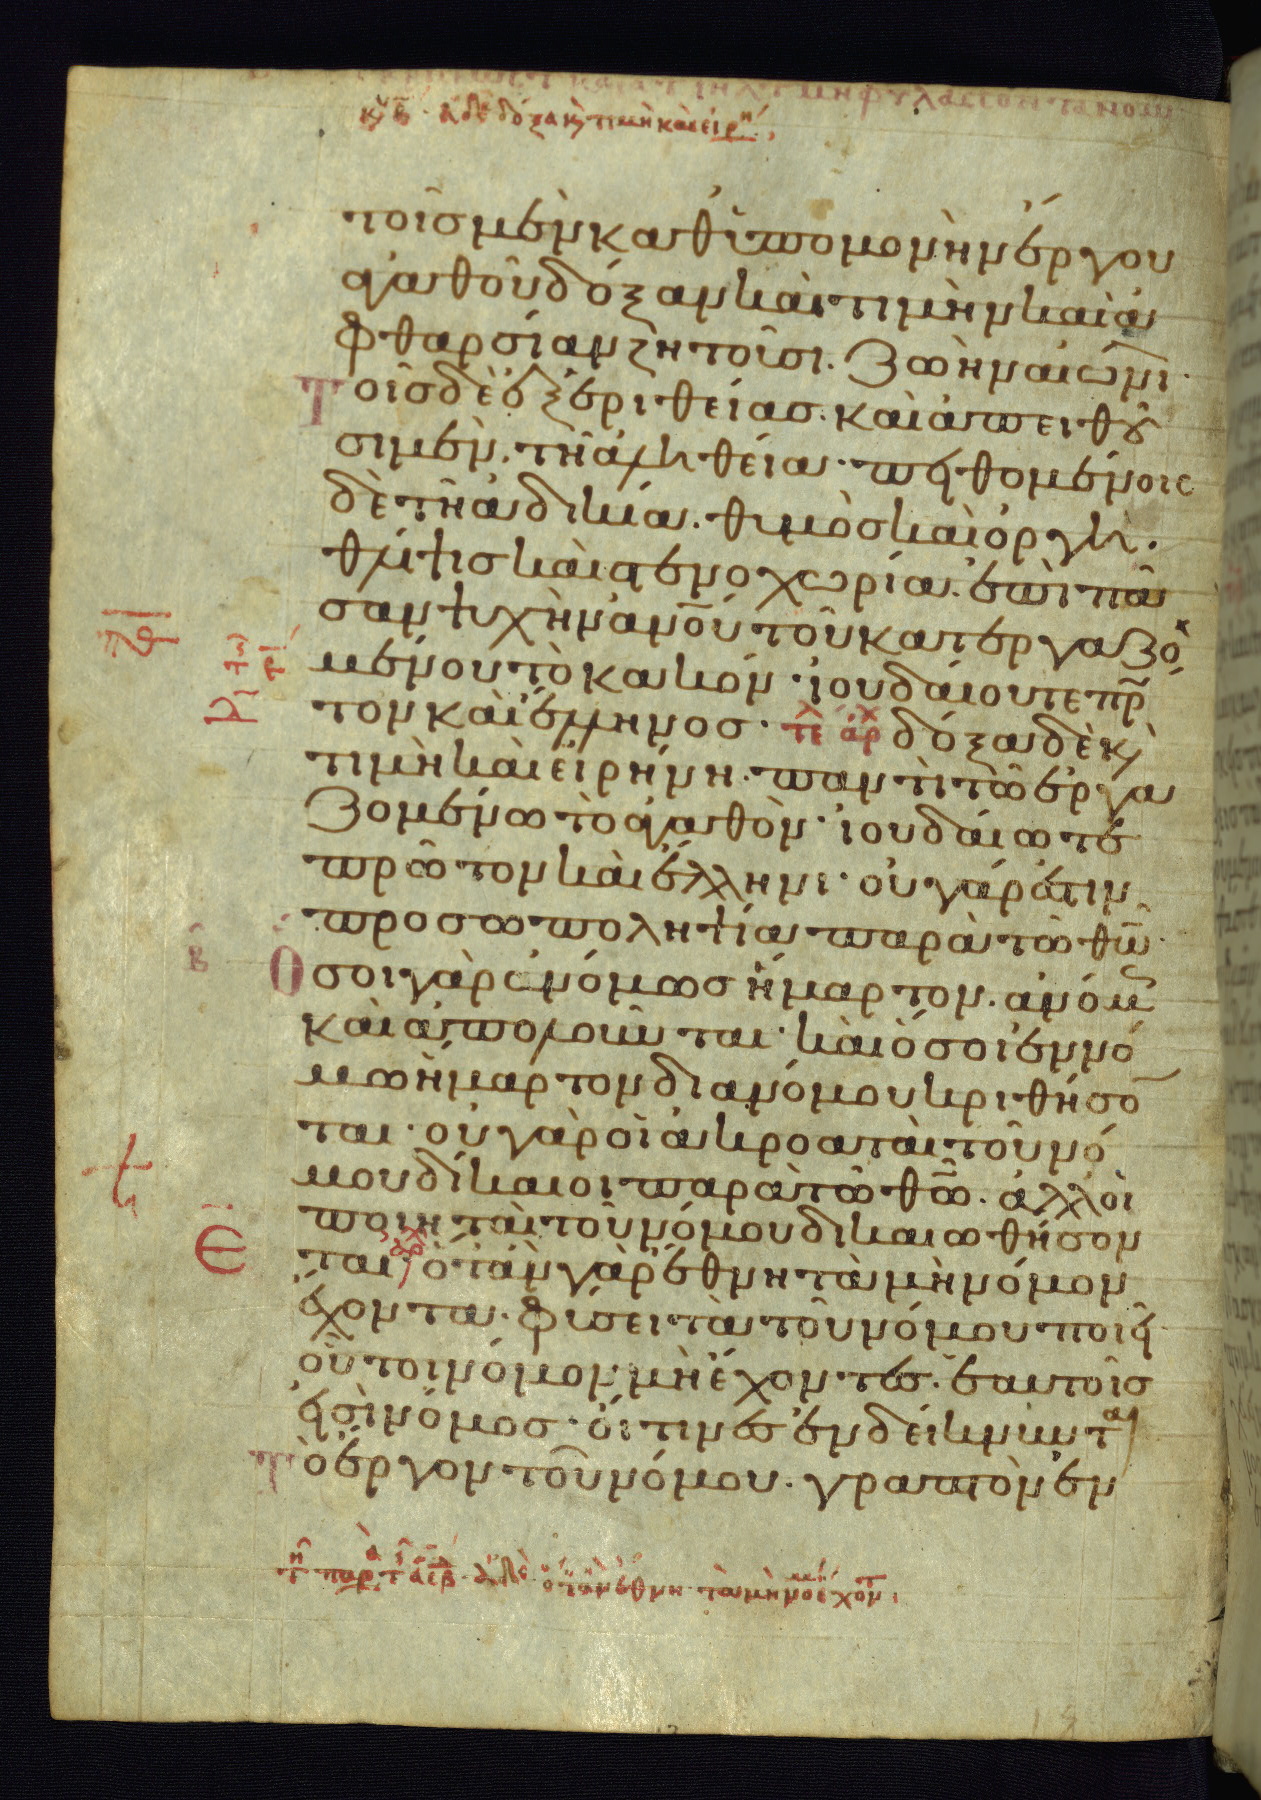 κυ β ἀδε δόξα κ τιμὴ καὶ εἰρη
τοῖσ μὲν καθ ὑπομονὴν ἔργου
ἀγαθοῦ δόξαν καὶ τιμὴν καὶ ἀ
φθαρσίαν ζητοῦσι. ζωὴν αἰώνι
Τοῖσ δὲ ἐξ ἐριθείασ. καὶ ἀπειθοῦ
σι μὲν. τῆ ἀληθεία. πειθομένοις
δὲ τῆ ἀδικία. θυμὸσ καὶ ὀργὴ.
θλίψισ καὶ στενοχωρία. ἐπὶ πᾶ
σαν ψυχὴν ἀνου τοῦ κατεργαζο
μένου τὸ κακόν. ἰουδαίου τε πρ
τον καὶ ἕλληνοσ. τε αρχ δόξα δὲ κ
τιμὴ καὶ εἰρήνη. παντὶ τῶ ἐργα
ζομένω τὸ ἀγαθὸν. ἰουδαίω τε
πρῶτον καὶ ἕλληνι. οὐ γάρ ἐστιν
προσωποληψία παρὰ τῶ θω.
β Ὅσοι γὰρ ἀνόμωσ ἥμαρτον. ἀνόμ
καὶ ἀπολοῦνται. καὶ ὅσοι ἐν νό
μω ἥμαρτον διὰ νόμου κριθήσο
ται. οὐ γὰρ οἱ ἀκροαταὶ τοῦ νό
μου δίκαιοι παρὰ τῶ θω. ἀλλ οἱ
ποιηταὶ τοῦ νόμου δικαιωθήσον
ται αρχ ὅταν γὰρ ἔθνη τὰ μὴ νόμον
ἔχοντα. φύσει τὰ τοῦ νόμου ποιῆ
οὗτοι νόμον μὴ ἔχοντεσ. ἑαυτοῖσ
εἰσὶ νόμοσ. οἵτινεσ ἐνδείκνυντ
Τὸ ἔργον τοῦ νόμου. γραπτὸν ἐν
ὅταν ἔθνη τὰ μὴ νο ἔχον